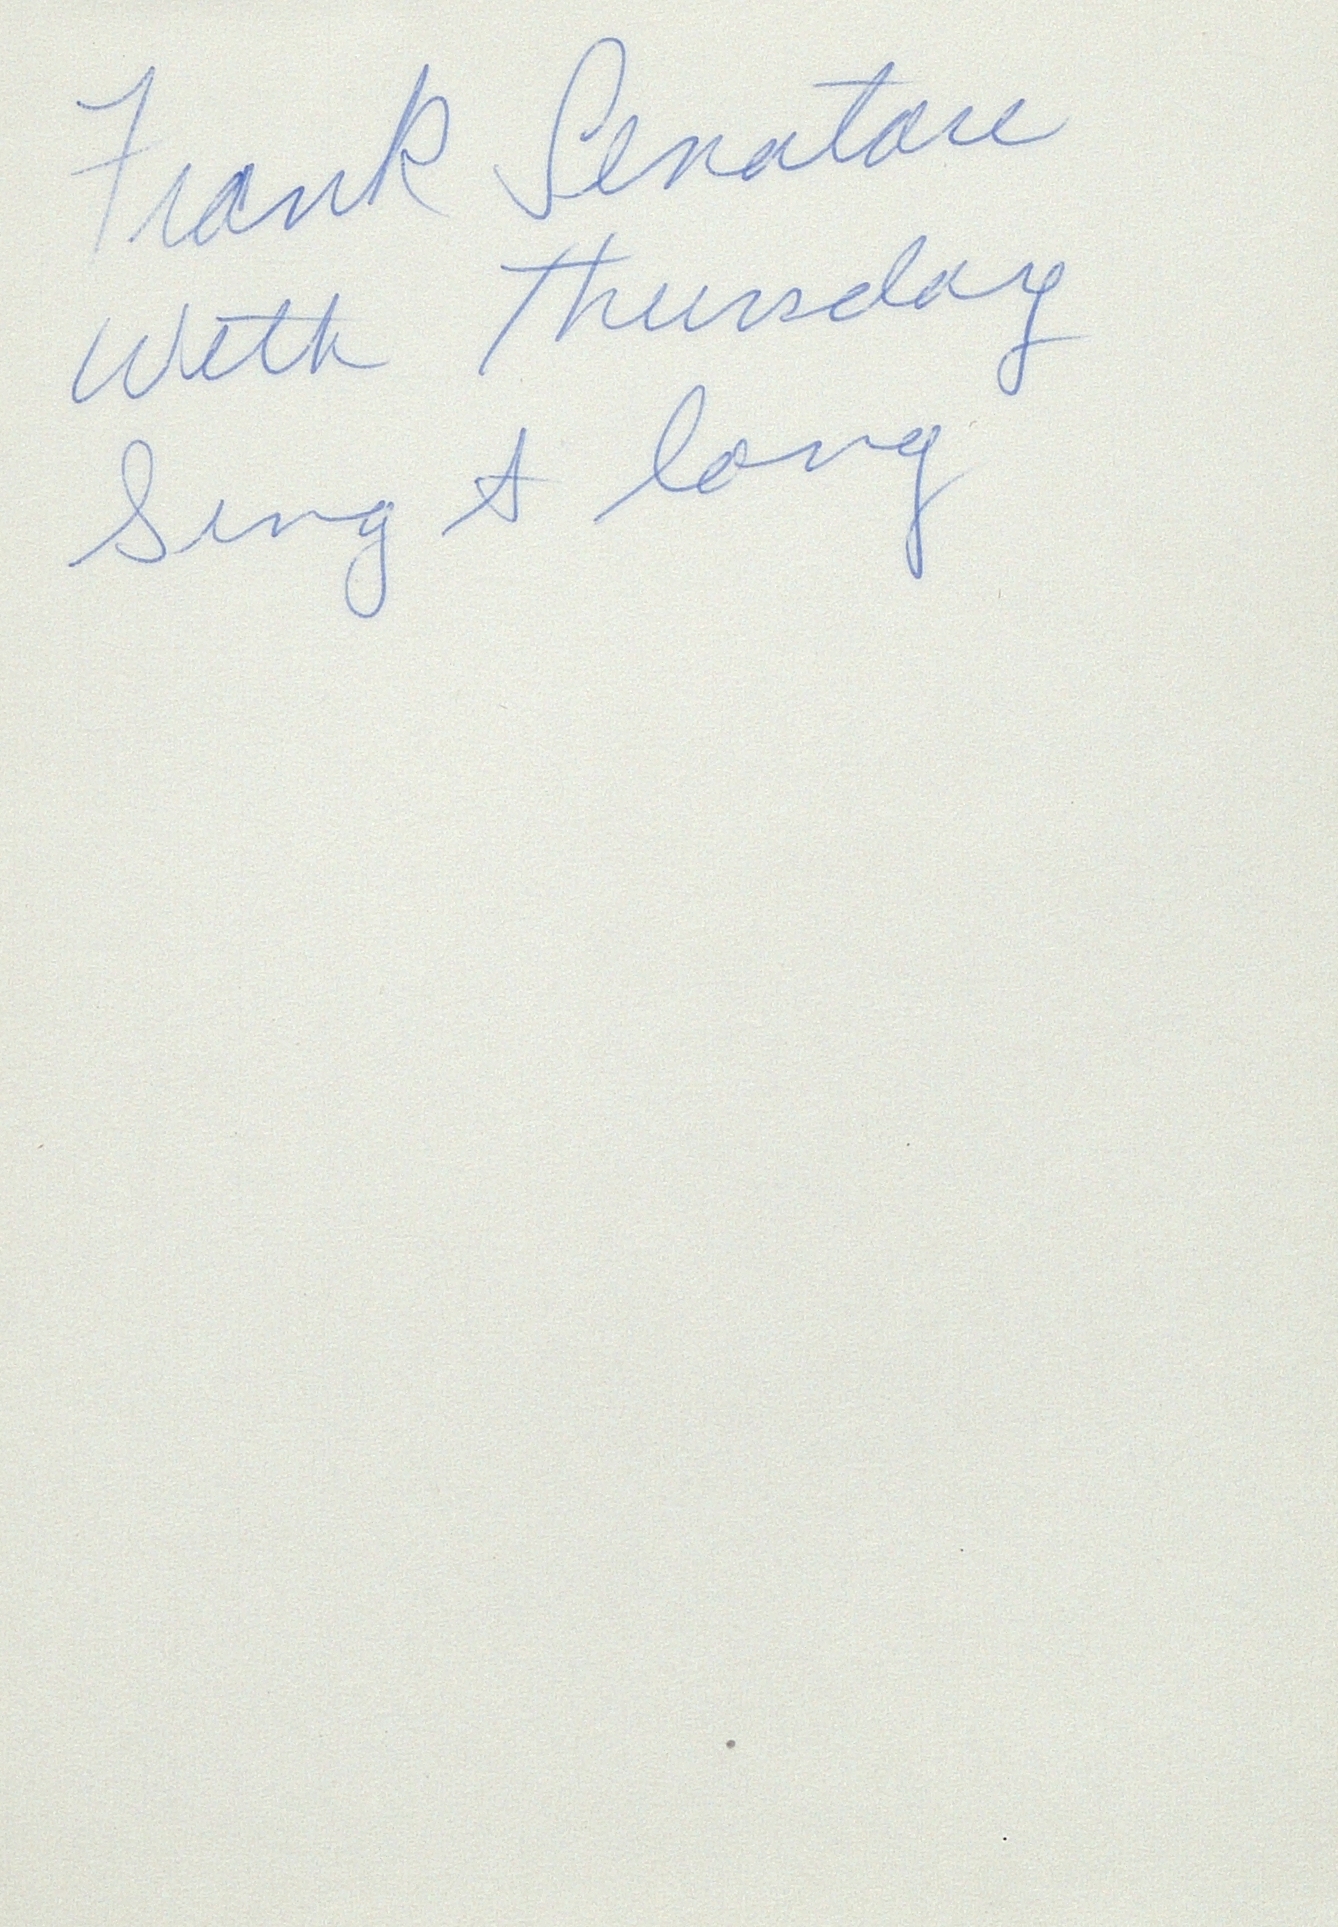 Frank Senatore
With Thursday
Sing A long